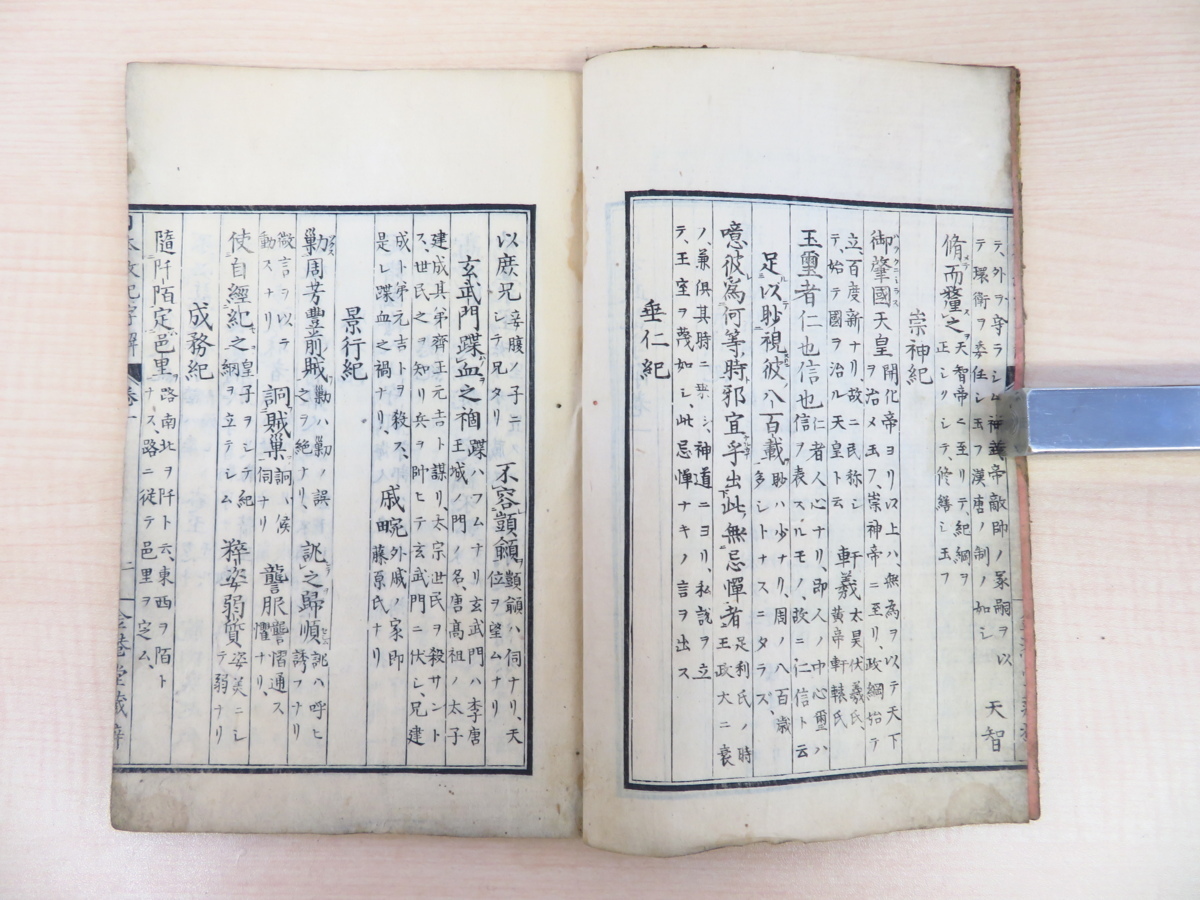 テ、外ヲ守ラシム 神武帝敵師ノ冢嗣ヲ以
テ環衛ヲ委任シ玉フ漢唐ノ制ノ如シ 天智
脩而釐之 天智帝ニ至リテ、紀綱ヲ正シクシテ、修繕シ玉フ
崇神紀
御肇國天皇 開化帝ヨリ以上ハ、無為ヲ以テ天下ヲ治メ玉フ、崇神帝ニ至リ、政綱始テ
立、百度新ナリ、故ニ民称シテ、始テ國ヲ治ル天皇ト云 軒羲 太昊伏羲氏、黄帝軒轅氏
玉璽者仁也信也 仁者人心ナリ、即人ノ中心璽ハ信ヲ表スルモノ、故ニ仁信ト云
足以眇視彼八百載 眇ハ少ナリ、周ノ八百歳多シトナスニタラズ、
噫彼為何等時邪宜乎出此無忌憚者 足利氏ノ時王政大ニ衰
ノ、兼倶其時ニ乗シ、神道ニヨリ、私説ヲ立テ、王室ヲ蔑如シ、此忌憚ナキノ言ヲ出ス
垂仁紀
以庶兄 妾腹ノ子ニシテ兄タリ 不容顗覦 顗覦ハ、伺ナリ、天位ヲ望ムナリ
玄武門蹀血之禍 蹀ハフムナリ玄武門ハ李唐王城ノ門ノ名、唐高祖ノ太子
建成其弟齊王元吉ト謀リ、太宗世民ヲ殺サントス、世民之ヲ知リ兵ヲ帥ヒテ玄武門ニ伏シ、兄建
成ト弟元吉トヲ殺ス、是レ蹀血之禍ナリ、 戚畹 外戚ノ家即藤原氏ナリ
景行紀
勦周芳豐前賊 勦ハ剿ノ誤之ヲ絶ナリ、 訛之歸順 訛ハ呼ヒ誘フナリ
微言ヲ以テ動スナリ 詗賊巢 詗ハ、候伺ナリ 讋服 讋慴通ス懼ナリ、
使自經紀之 皇子ヲシテ紀綱ヲ立テシム 粹姿弱質 姿美ニシテ弱ナリ
成務紀
隨阡陌定邑里 路南北ヲ阡ト云、東西ヲ陌トナス、路ニ従テ邑里ヲ定ム、
巻一
二